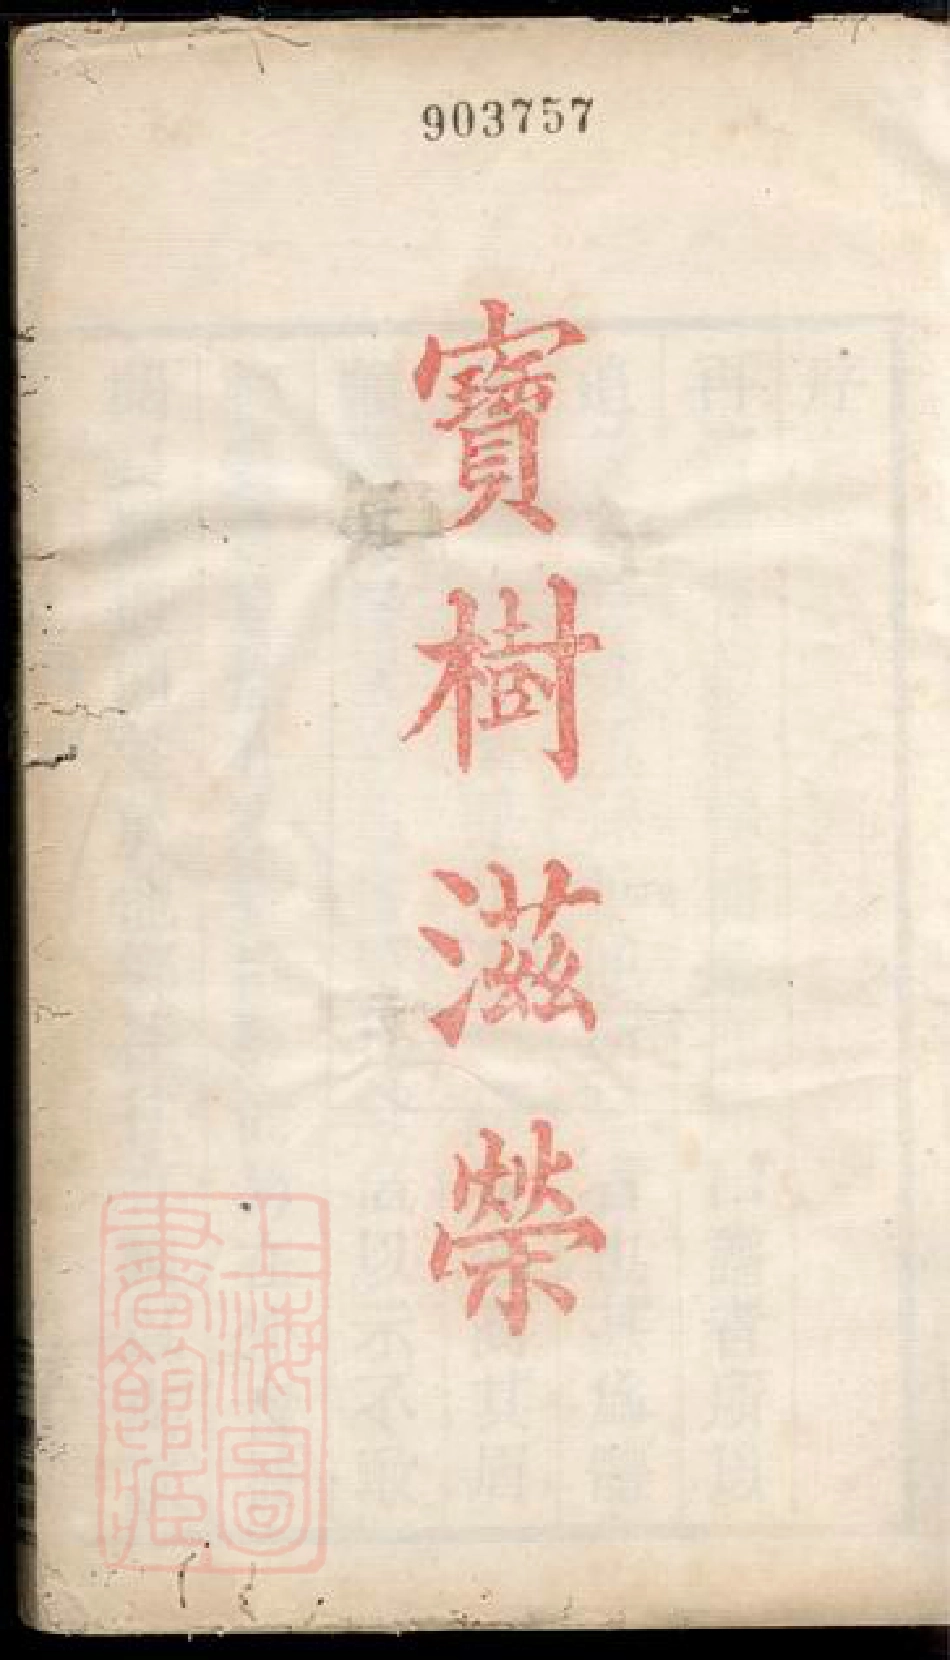 903757
寶樹滋榮
上海圖
書館藏